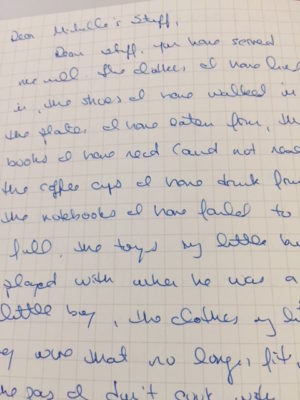 Dear Michelle's Stuff,
Dear stuff, you have served
me well. The clothes I have lived
in, the shoes I have walked in
the plates I have eaten from, the
books I have read (and not read
the coffee cups I have drunk from
the notebooks I have failed to
full, the toys my little
played with when he was a
little boy, the clothes my
wore that no longer fit,
I don't